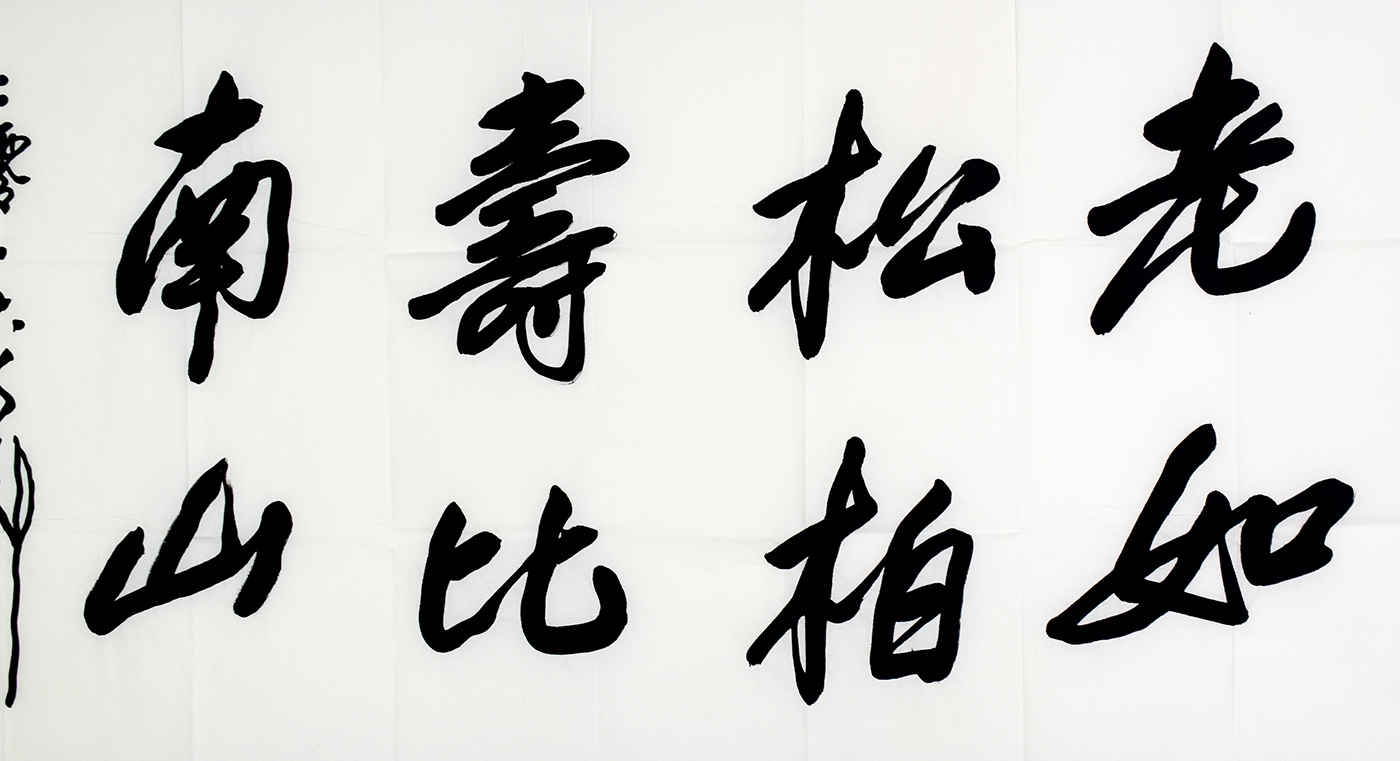 老如
松柏
壽比
南山